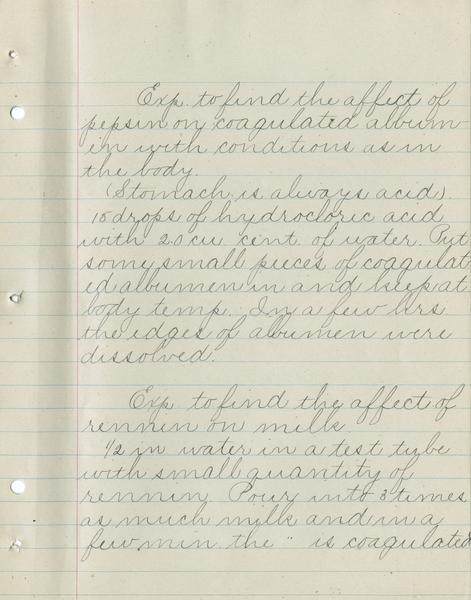 Exp. to find the affect of
pepsin on coagulated album-
in with conditions as in
the body.
(Stomach is always acid).
10 drops of hydrocloric acid
with 20 cu cent. of water. Put
some small pieces of coagulat
ed albumen in and keep at
body temp. In a few hrs.
the edges of abumen were
dissolved.
Exp to find the affect of
rennin on milk
1/2 in water in a test tube
with small quantity of
rennin. Pour into 3 times
as much milk and in a
few min. the " is coagulated